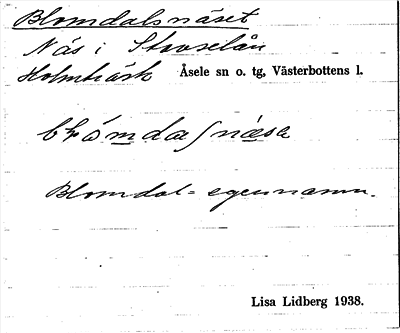 Blomdalsnäset
Näs i Stavselån
Holmträsk Åsele sn o. tg, Västerbottens l.
Blomdal = egennamn.
Lisa Lidberg 1938.